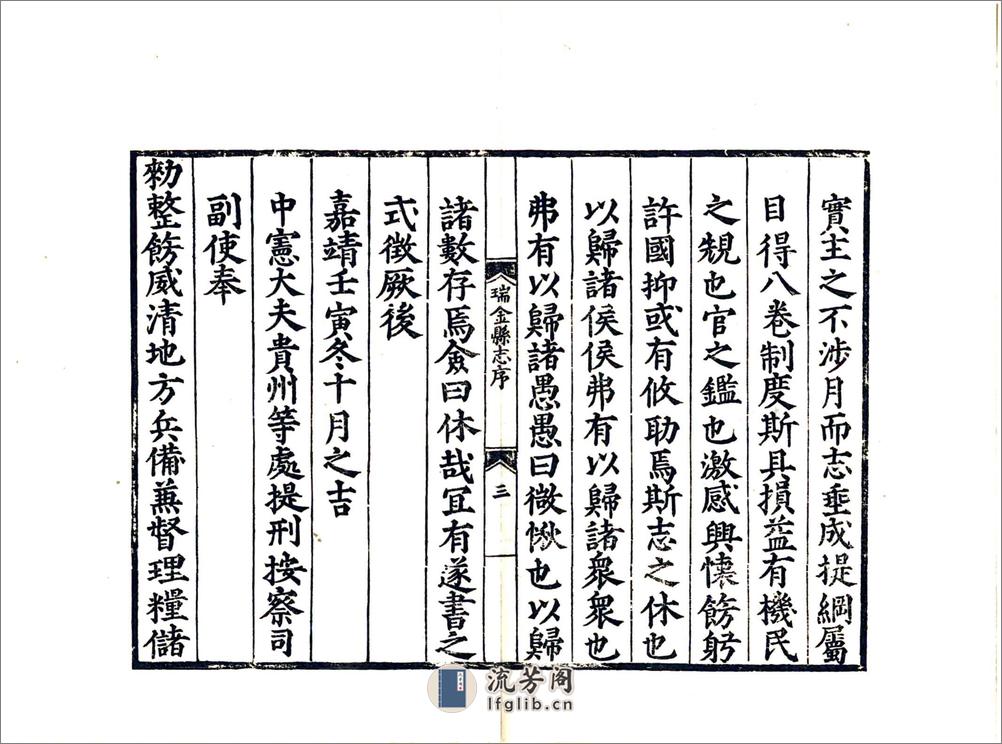 實主之不涉月而志垂成提綱屬
目得八卷制度斯具損益有機民
之䂓也官之鑑也激感興懷飭躬
許國抑或有攸助焉斯志之休也
以歸諸侯侯弗有以歸諸衆衆也
弗有以歸諸愚愚曰微愀也以歸
瑞金縣志序
三
諸數存焉僉曰休哉冝有遂書之
式徵厥後
嘉靖壬寅冬十月之吉
中憲大夫貴州等處提刑按察司
副使奉
勑整飭威清地方兵備兼督理糧儲
流芳阁
lfglib.cn